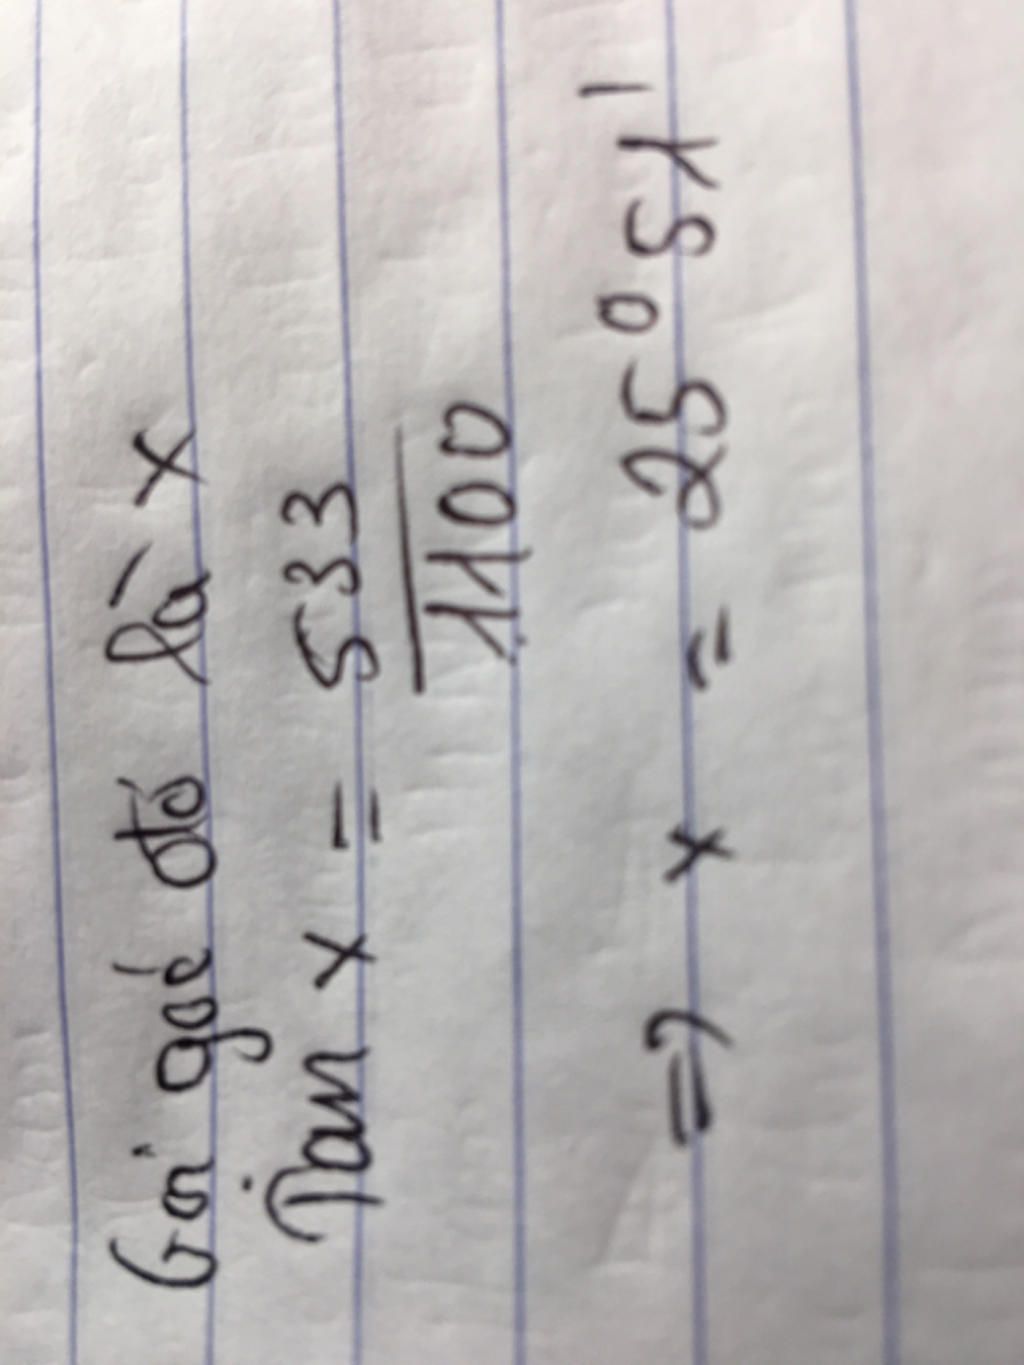 Gọi góc đó là x
Tan x = 533
1100
=> x = 25°51'